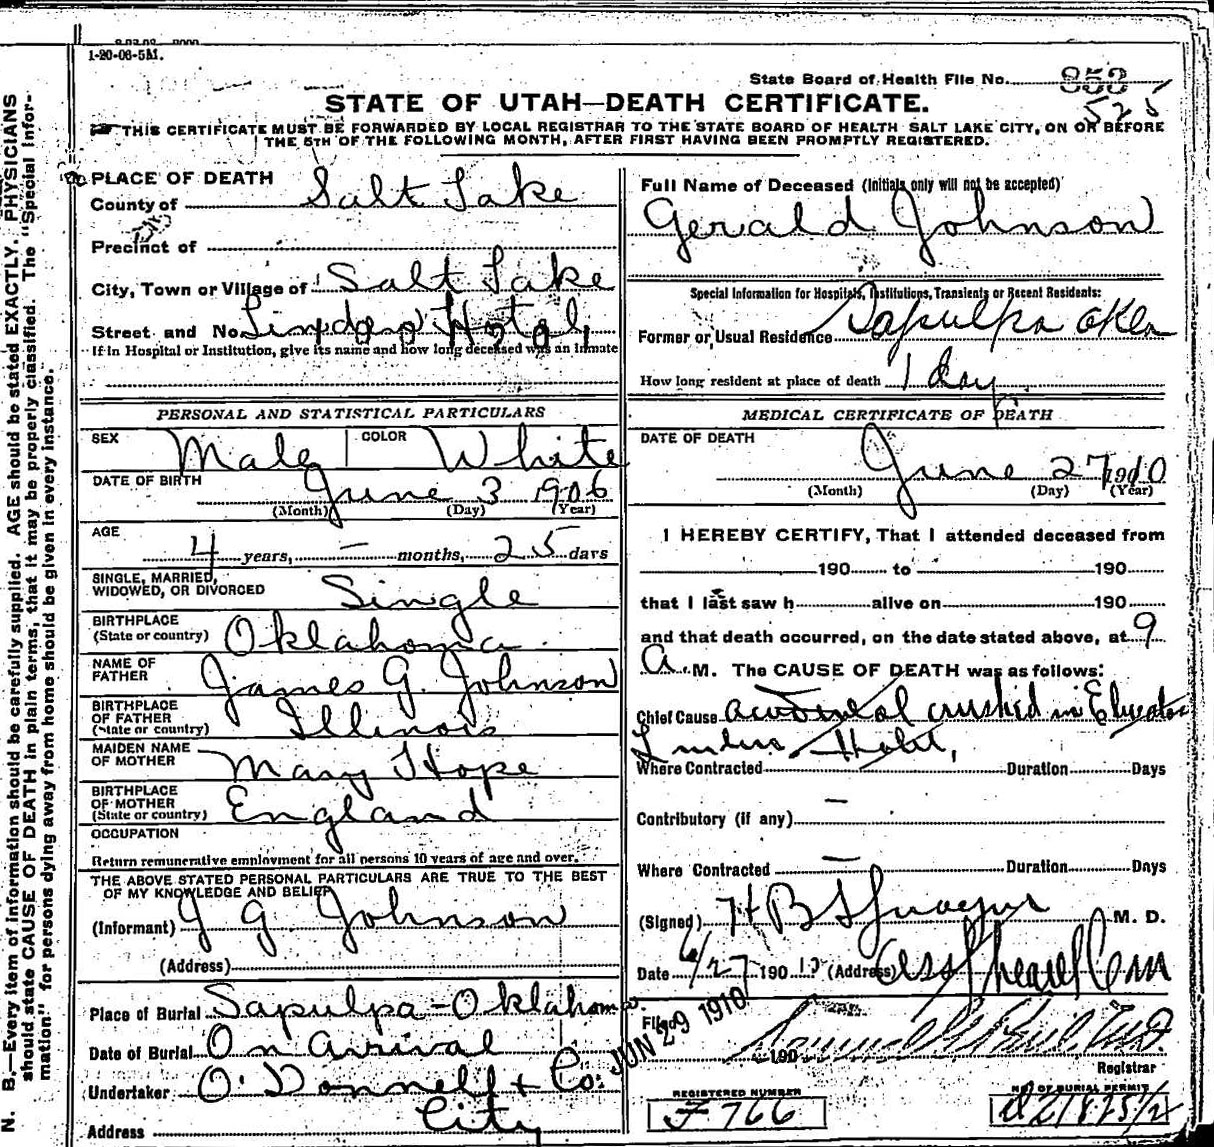 1-20-06-5M.
State Board of Health File No. 853
525
STATE OF UTAH—DEATH CERTIFICATE.
THIS CERTIFICATE MUST BE FORWARDED BY LOCAL REGISTRAR TO THE STATE BOARD OF HEALTH SALT LAKE CITY, ON OR BEFORE
THE 5TH OF THE FOLLOWING MONTH, AFTER FIRST HAVING BEEN PROMPTLY REGISTERED.
N. B.—Every item of information should be carefully supplied. AGE should be stated EXACTLY. PHYSICIANS
should state CAUSE OF DEATH in plain terms, that it may be properly classified. The "Special Infor-
mation" for persons dying away from home should be given in every instance.
PLACE OF DEATH
County of Salt Lake
Precinct of
City, Town or Village of Salt Lake
Street and No. Linden Hotel
If in Hospital or Institution, give its name and how long deceased was an inmate
PERSONAL AND STATISTICAL PARTICULARS
SEX Male COLOR White
DATE OF BIRTH June 3 1906
(Month) (Day) (Year)
AGE
4 years, — months, 25 days
SINGLE, MARRIED,
WIDOWED, OR DIVORCED Single
BIRTHPLACE
(State or country) Oklahoma
NAME OF
FATHER James G. Johnson
BIRTHPLACE
OF FATHER
(State or country) Illinois
MAIDEN NAME
OF MOTHER Mary Hope
BIRTHPLACE
OF MOTHER
(State or country) England
OCCUPATION
Return remunerative employment for all persons 10 years of age and over.
THE ABOVE STATED PERSONAL PARTICULARS ARE TRUE TO THE BEST
OF MY KNOWLEDGE AND BELIEF
(Informant) J G Johnson
(Address)
Place of Burial Sapulpa - Oklahoma
Date of Burial On Arrival
Undertaker O'Donnell & Co.
Address City
Full Name of Deceased (Initials only will not be accepted)
Gerald Johnson
Special Information for Hospitals, Institutions, Transients or Recent Residents:
Former or Usual Residence Sapulpa Okla
How long resident at place of death 1 day
MEDICAL CERTIFICATE OF DEATH
DATE OF DEATH
June 27 1910
(Month) (Day) (Year)
I HEREBY CERTIFY, That I attended deceased from
190 to 190
that I last saw h alive on 190
and that death occurred, on the date stated above, at 9
A. M. The CAUSE OF DEATH was as follows:
Chief Cause accidental crushed in Elevator
Linden Hotel,
Where Contracted Duration Days
Contributory (if any) —
Where Contracted — Duration Days
(Signed) H B M. D.
Date 6/27 190 10 (Address)
Filed JUN 29 1910
190
Registrar
REGISTERED NUMBER
F 766
NO OF BURIAL PERMIT